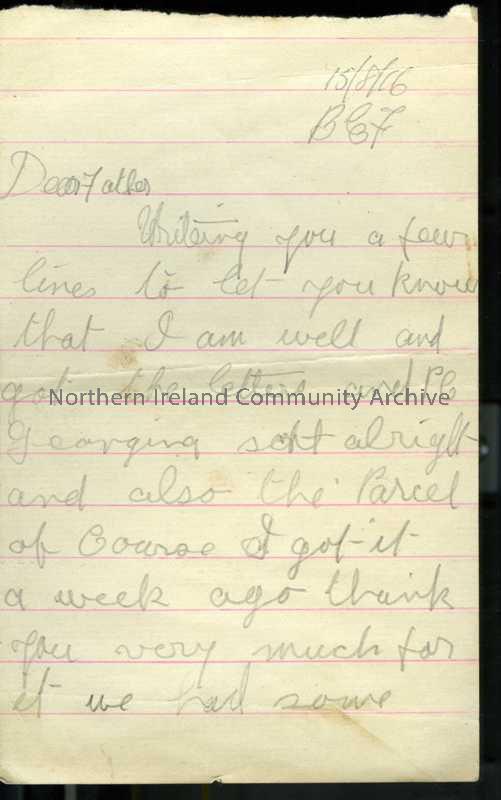 15/8/16
BEF
Dear Father
Writing you a few
lines to let you know
that I am well and
got the letters and PC
Northern Ireland Community Archive
Georgina sent alright
and also the Parcel
of Course I got it
a week ago thank
you very much for
it we had some